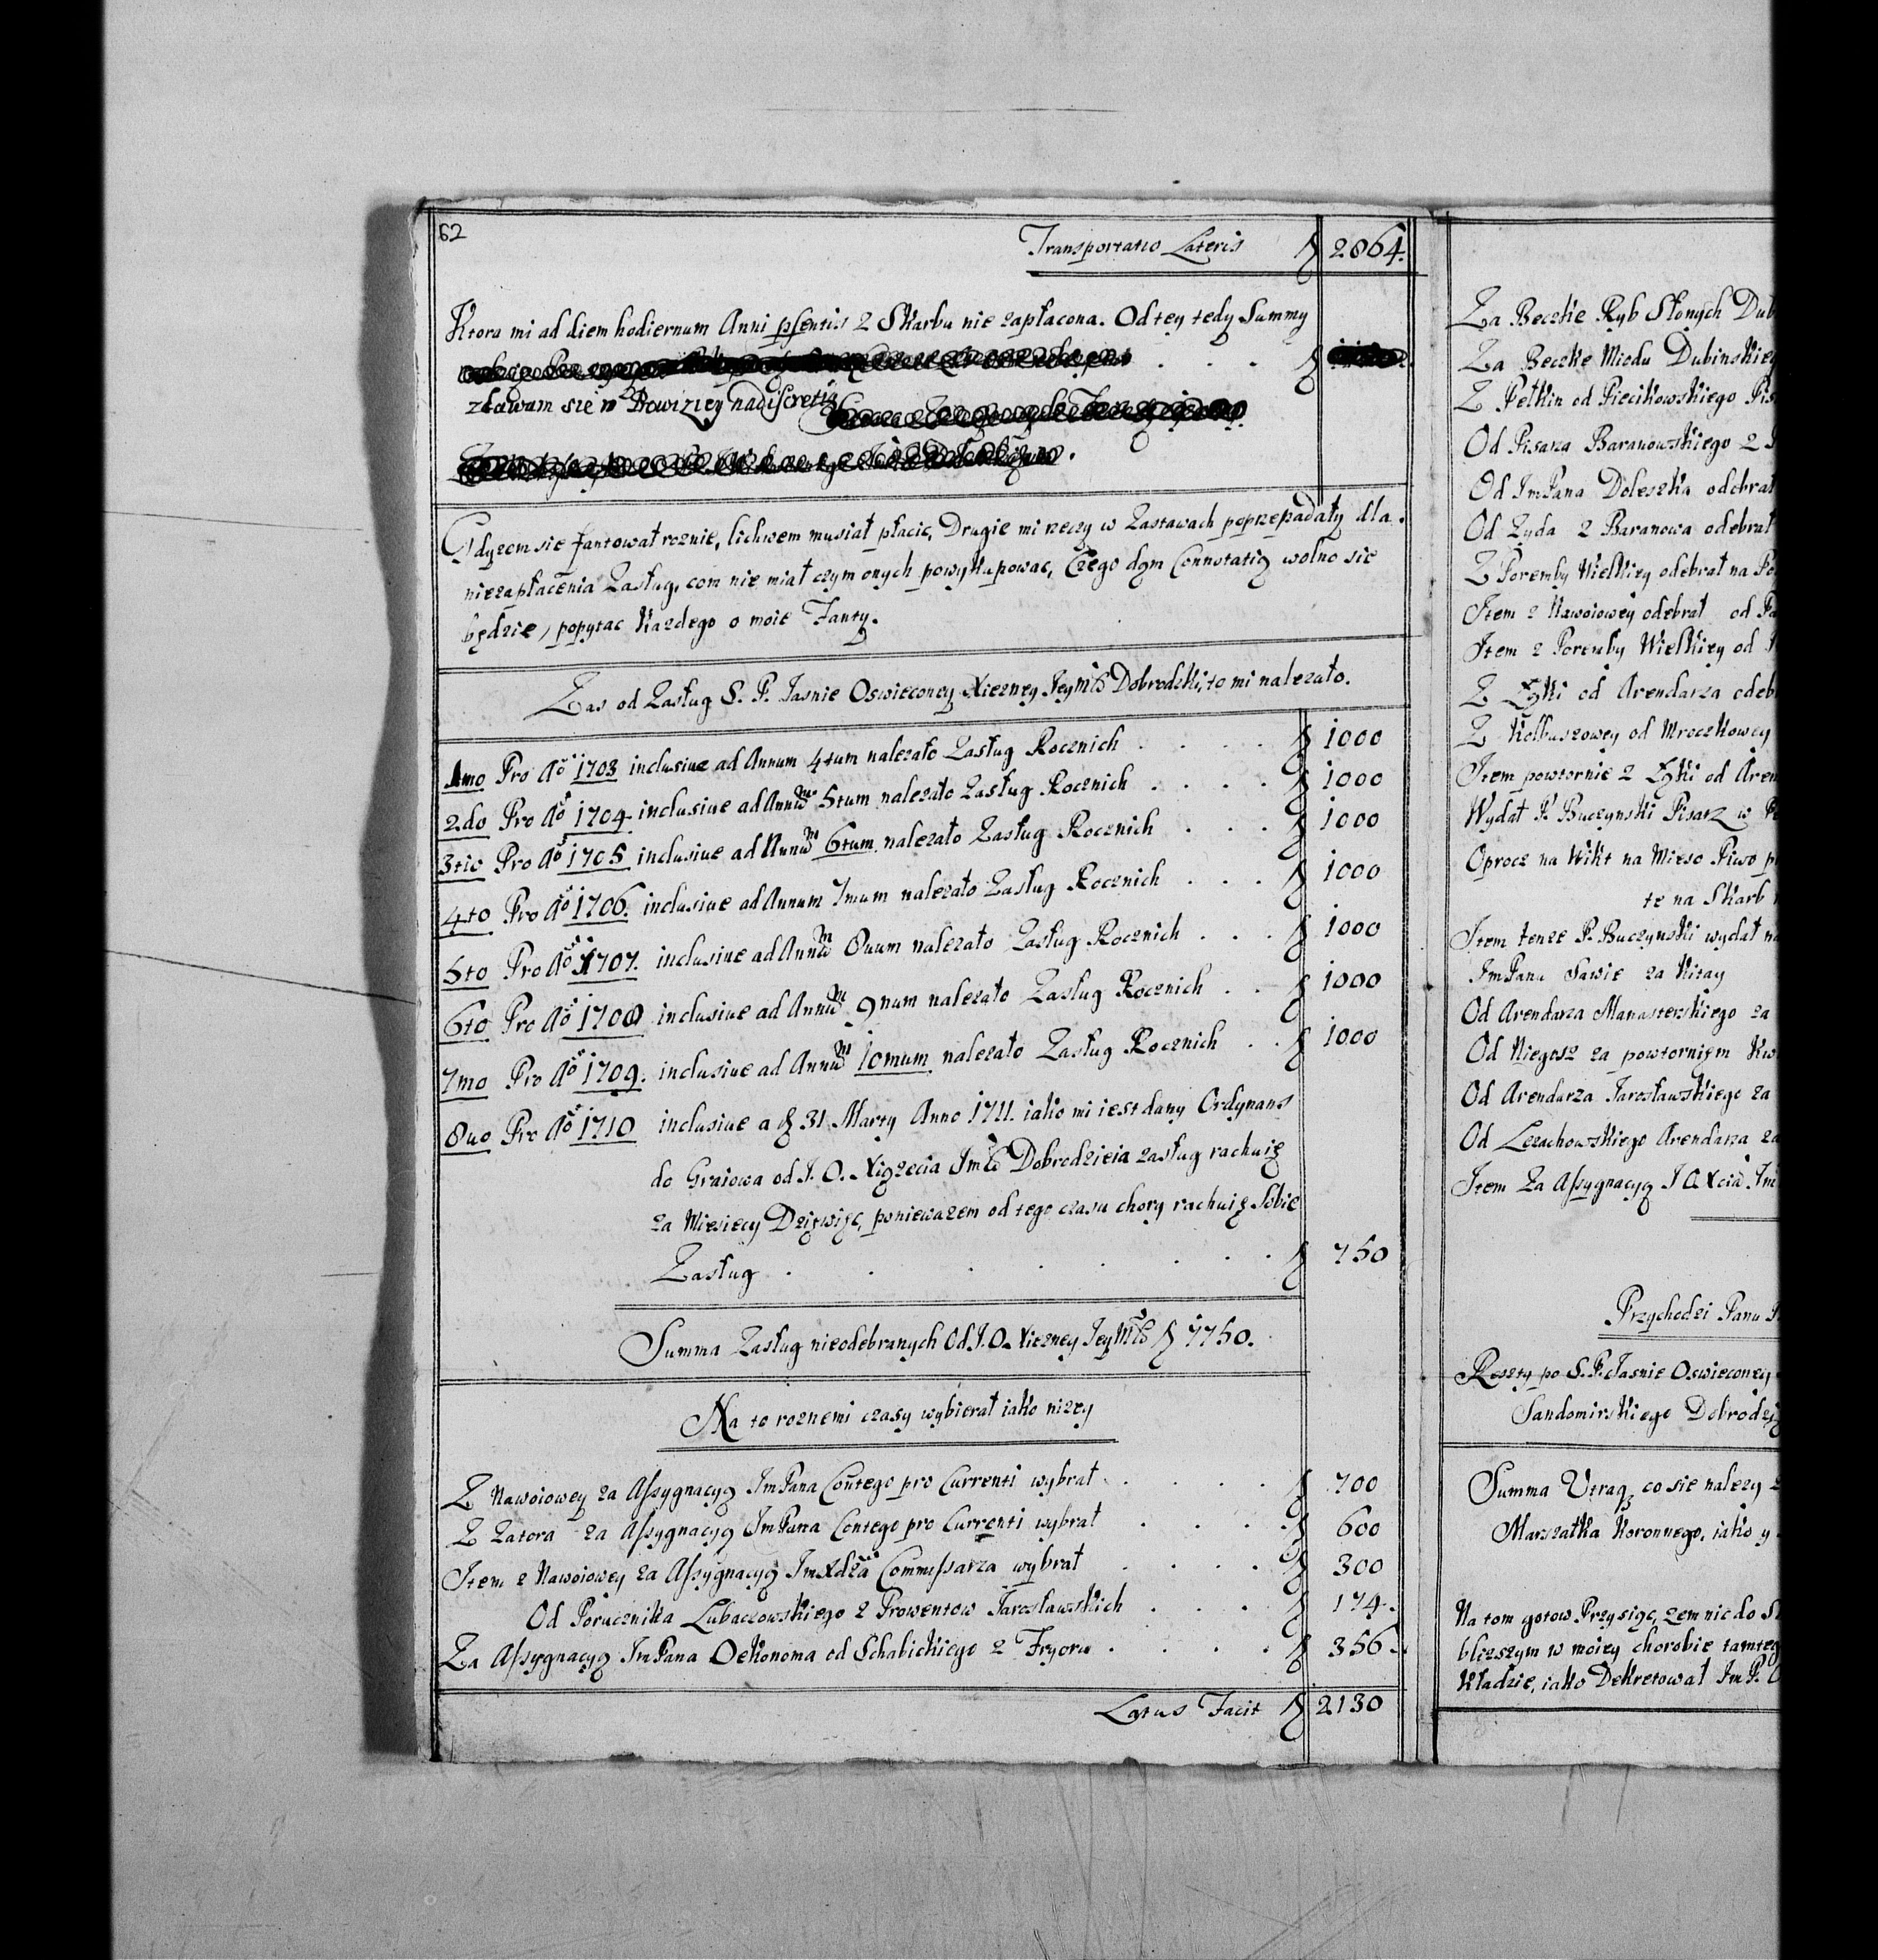 62
Transportatio Lateris f 2864.
Ktora mi ad diem hodiernum Anni psentis z Skarbu nie zapłacona. Od tey tedy Summy
zdawam się na Prowizyey na discretią
Gdyzem sie fantował roznie, lichwem musiał płacic, Drugie mi rzeczy w Zastawach poprzepadały dla
niezapłacenia Zasług, com nie miał czym onych powykupowac, Czego dgm Connotatią wolno sie
będzie, popytac kazdego o moie Fanty.
Zas od Zasług S. P. Jasnie Oswieconey Xiezney Jeymć Dobrodzki, to mi nalezało.
1mo Pro Aō 1703 inclusiue ad Annum 4tum nalezało Zasług Rocznich . . . . f 1000
2do Pro Aō 1704 inclusiue ad Annum 5tum nalezało Zasług Rocznich . . . . f 1000
3tio Pro Aō 1705 inclusiue ad Annum 6tum nalezało Zasług Rocznich . . . f 1000
4to Pro Aō 1706. inclusiue ad Annum 7mum nalezało Zasług Rocznich . . . f 1000
5to Pro Aō 1707. inclusiue ad Annum 8uum nalezało Zasług Rocznich . . . f 1000
6to Pro Aō 1708 inclusiue ad Annum 9num nalezało Zasług Rocznich . . f 1000
7mo Pro Aō 1709. inclusiue ad Annum 10mum nalezało Zasług Rocznich . . f 1000
8uo Pro Aō 1710 inclusiue a d 31 Marty Anno 1711. iako mi iest dany Ordynans
do Graiowa od J. O. Xiązecia Jmći Dobrodzieia zasług rachuię
za Miesięcy Dziewięc, poniewazem od tego czasu chory rachuię Sobie
Zasług . . . . . . . f 750
Summa Zasług nieodebranych Od J. O. Xiezney Jeymć f 7750.
Na to roznemi czasy wybierał iako nizey
Z Nawoiowey za Assygnacyą JmPana Contego pro Currenti wybrał . . . . f 700
Z Zatora za Assygnacyą JmPana Contego pro Currenti wybrał . . . . f 600
Item z Nawoiowey za Assygnacyą JmXdza Commissarza wybrał . . . . f 300
Od Porucznika Lubaczowskiego z Prowentow Jarosławskich . . . f 174.
Za Assygnacyą JmPana Oekonoma od Schabickiego z Fryoru . . . . f 356.
Latus Facit f 2130
Za Beczke Ryb Słonych Dub
Za Beczke Miodu Dubinskie
Z Pełkin od Piecikowskiego Pis
Od Pisarza Baranowskiego z
Od JmPana Doleszka odebrał
Od Zyda z Baranowa odebrał
Z Poremby Wielkiey odebrał na Po
Item z Nawoiowey odebrał od Pa
Item z Poremby Wielkiey od
Z Łąki od Arendarza odeb
Z Kolbuszowey od Mroczkowey
Item powtornie z Łąki od Aren
Wydał P. Buczynski Pisarz w
Oprocz na Wikt na Mięso Piwo p
te na Skarb
Item tenze P. Buczynski wydał na
JmPanu Sawie za Kitay
Od Arendarza Manasterskiego za
Od Niegosz za powtornięm Kw
Od Arendarza Jarosławskiego za
Od Lezachowskiego Arendarza za
Item Za Assygnacyą J O Xcia Jm
Przychodzi Panu
Reszty po S. P. Jasnie Oswieconey
Sandomirskiego Dobrodzi
Summa Utraq co sie nalezy
Marszałka Koronnego, iako y
Na tom gotow Przysiąc, zem nic do S
blizszym w moiey chorobie tamteg
kładzie, iako Dekretował Jm P. O